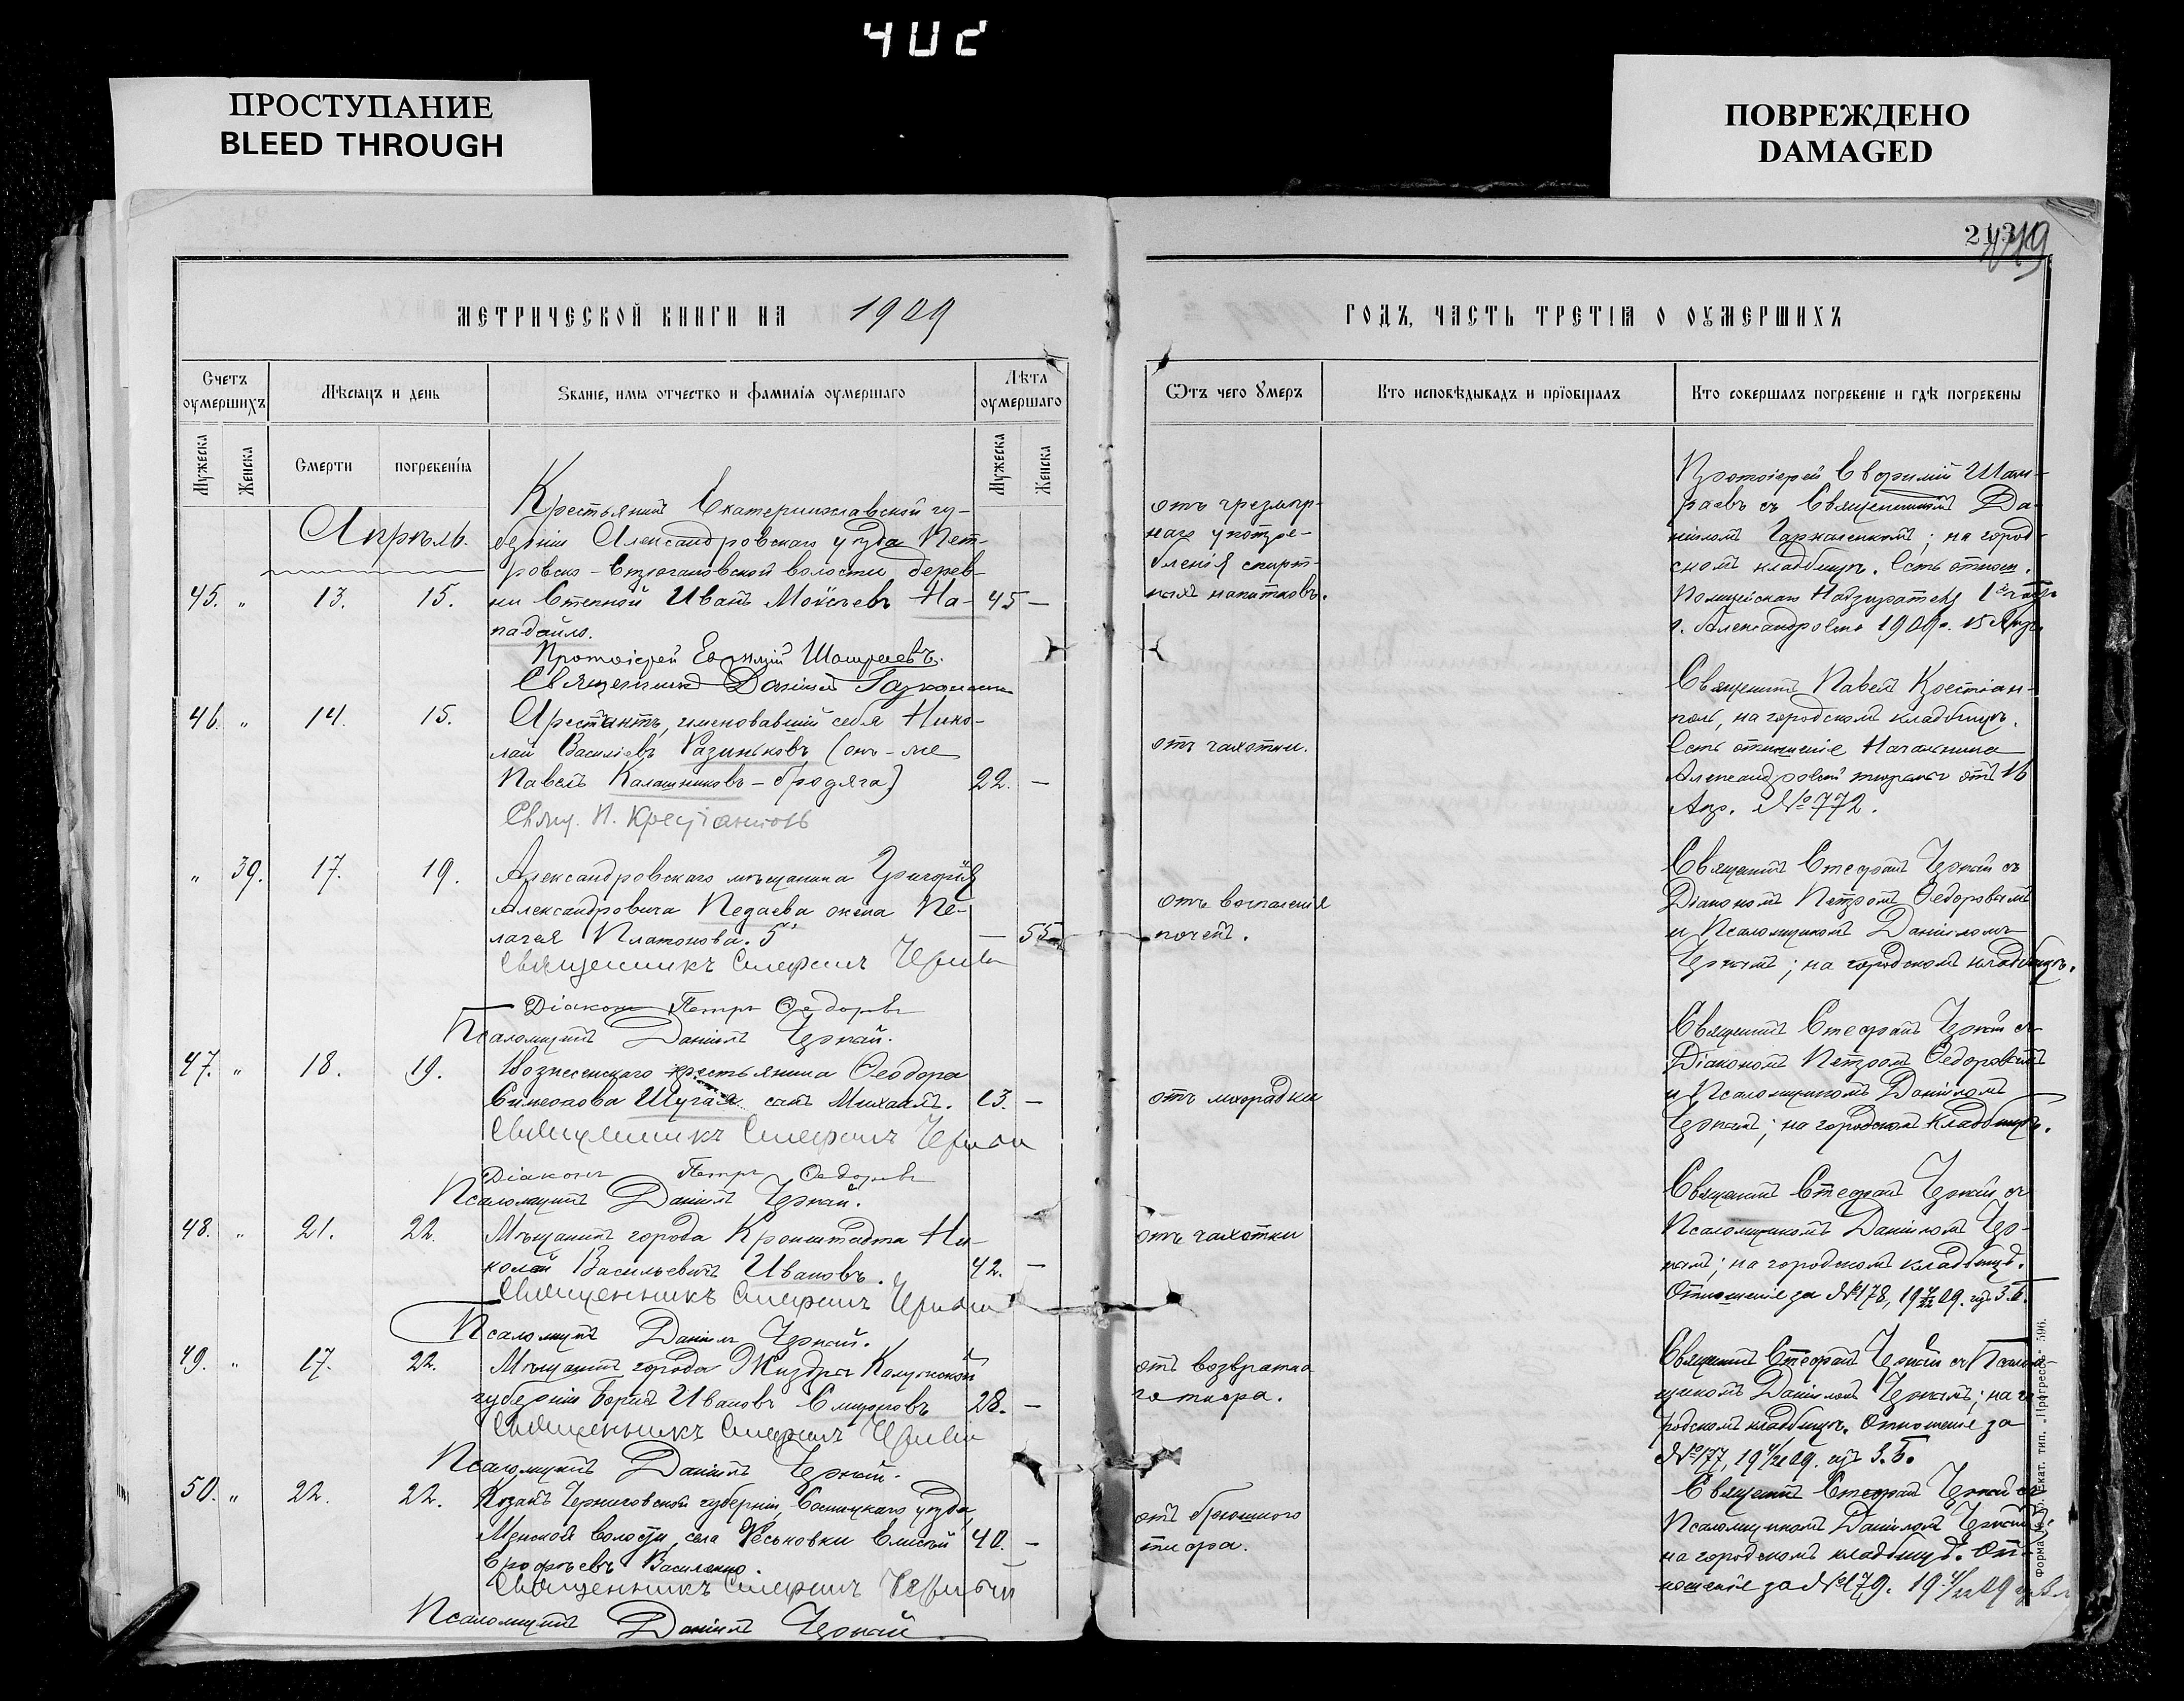 402
ПРОСТУПАНИЕ
BLEED THROUGH
ПОВРЕЖДЕНО
DAMAGED
МЕТРИЧЕСКОЙ КНИГИ НА 1909
ГОДЪ, ЧАСТЬ ТРЕТІЯ О ОУМЕРШИХЪ
Счетъ оумершихъ
Мѣсяцъ и день
Званіе, имя отчество и фамилія оумершаго
Лѣта оумершаго
Ѿтъ чего Умеръ
Кто исповѣдывалъ и пріобщалъ
Кто совершалъ погребеніе и гдѣ погребены
Мужеска
Женска
Смерти
погребенія
Мужеска
Женска
Апрѣль.
45. „ 13. 15.
Крестьянинъ Екатеринославской гу-
берніи Александровскаго уѣзда Пет-
ровско-волости дерев-
ни Степной Иванъ Моисѣевъ На- 45 —
падайло.
Протоіерей Евфимій
Священникъ Даніилъ
отъ чрезмѣр-
наго употре-
бленія спирт-
ныхъ напитковъ.
Протоіерей Евфимій
съ Священникомъ Да-
ніиломъ ; на город-
скомъ кладбищѣ. Есть отнош.
Полицейскаго Надзирателя 1й части
г. Александровска 1909г. 15 Апр.
46. „ 14. 15.
Арестантъ, именовавшій себя Нико-
лай Василіевъ Разиньковъ (онъ-же
Павелъ Калашниковъ – бродяга) 22. —
Свящ. П.
отъ чахотки.
Священникъ Павелъ
на городскомъ кладбищѣ.
Есть отношеніе Начальника
Александровской тюрьмы отъ 16
Апр. № 772.
„ 39. 17. 19.
Александровскаго мѣщанина Григорія
Александровича Педаева жена Пе-
лагея Платонова. — 55
Священникъ Стефанъ Черный
Діаконъ Петръ Ѳедоровъ
Псаломщикъ Даніилъ Черный.
отъ воспаленія
почекъ.
Священникъ Стефанъ Черный съ
Діакономъ Петромъ Ѳедоровымъ
и Псаломщикомъ Даніиломъ
Чернымъ; на городскомъ кладбищѣ.
47. „ 18. 19.
Вознесенскаго крестьянина Ѳеодора
Симеонова Шугая сынъ Михаилъ. 13. —
Священникъ Стефанъ Черный
Діаконъ Петръ Ѳедоровъ
Псаломщикъ Даніилъ Черный.
отъ лихорадки
Священникъ Стефанъ Черный съ
Діакономъ Петромъ Ѳедоровымъ
и Псаломщикомъ Даніиломъ
Чернымъ; на городскомъ кладбищѣ.
48. „ 21. 22.
Мѣщанинъ города Кронштадта Ни-
колай Васильевичъ Ивановъ. 42. —
Священникъ Стефанъ Черный
Псаломщикъ Даніилъ Черный.
отъ чахотки
Священникъ Стефанъ Черный съ
Псаломщикомъ Даніиломъ Чер-
нымъ; на городскомъ кладбищѣ.
Отношеніе за № 178, 19 4/22 09. изъ З.Б.
49. „ 17. 22.
Мѣщанинъ города Жиздры Калужской
губерніи Борисъ Ивановъ Смирновъ 28. —
Священникъ Стефанъ Черный
Псаломщикъ Даніилъ Черный.
отъ возвратна
го тифа.
Священникъ Стефанъ Черный съ Псалом-
щикомъ Даніиломъ Чернымъ; на го-
родскомъ кладбищѣ. Отношеніе за
№ 177, 19 4/22 09. изъ З.Б.
50. „ 22. 22.
Козакъ Черниговской губерніи, Сосницкаго уѣзда,
Менской волости, села Феськовки Елисей 40. —
Ерофѣевъ Василенко.
Священникъ Стефанъ Черный
Псаломщикъ Даніилъ Черный
отъ брюшного
тифа.
Священникъ Стефанъ Черный съ
Псаломщикомъ Даніиломъ Чернымъ;
на городскомъ кладбищѣ. От-
ношеніе за № 179. 19 4/22 09
Екат. тип. „Прогрессъ“ 596.